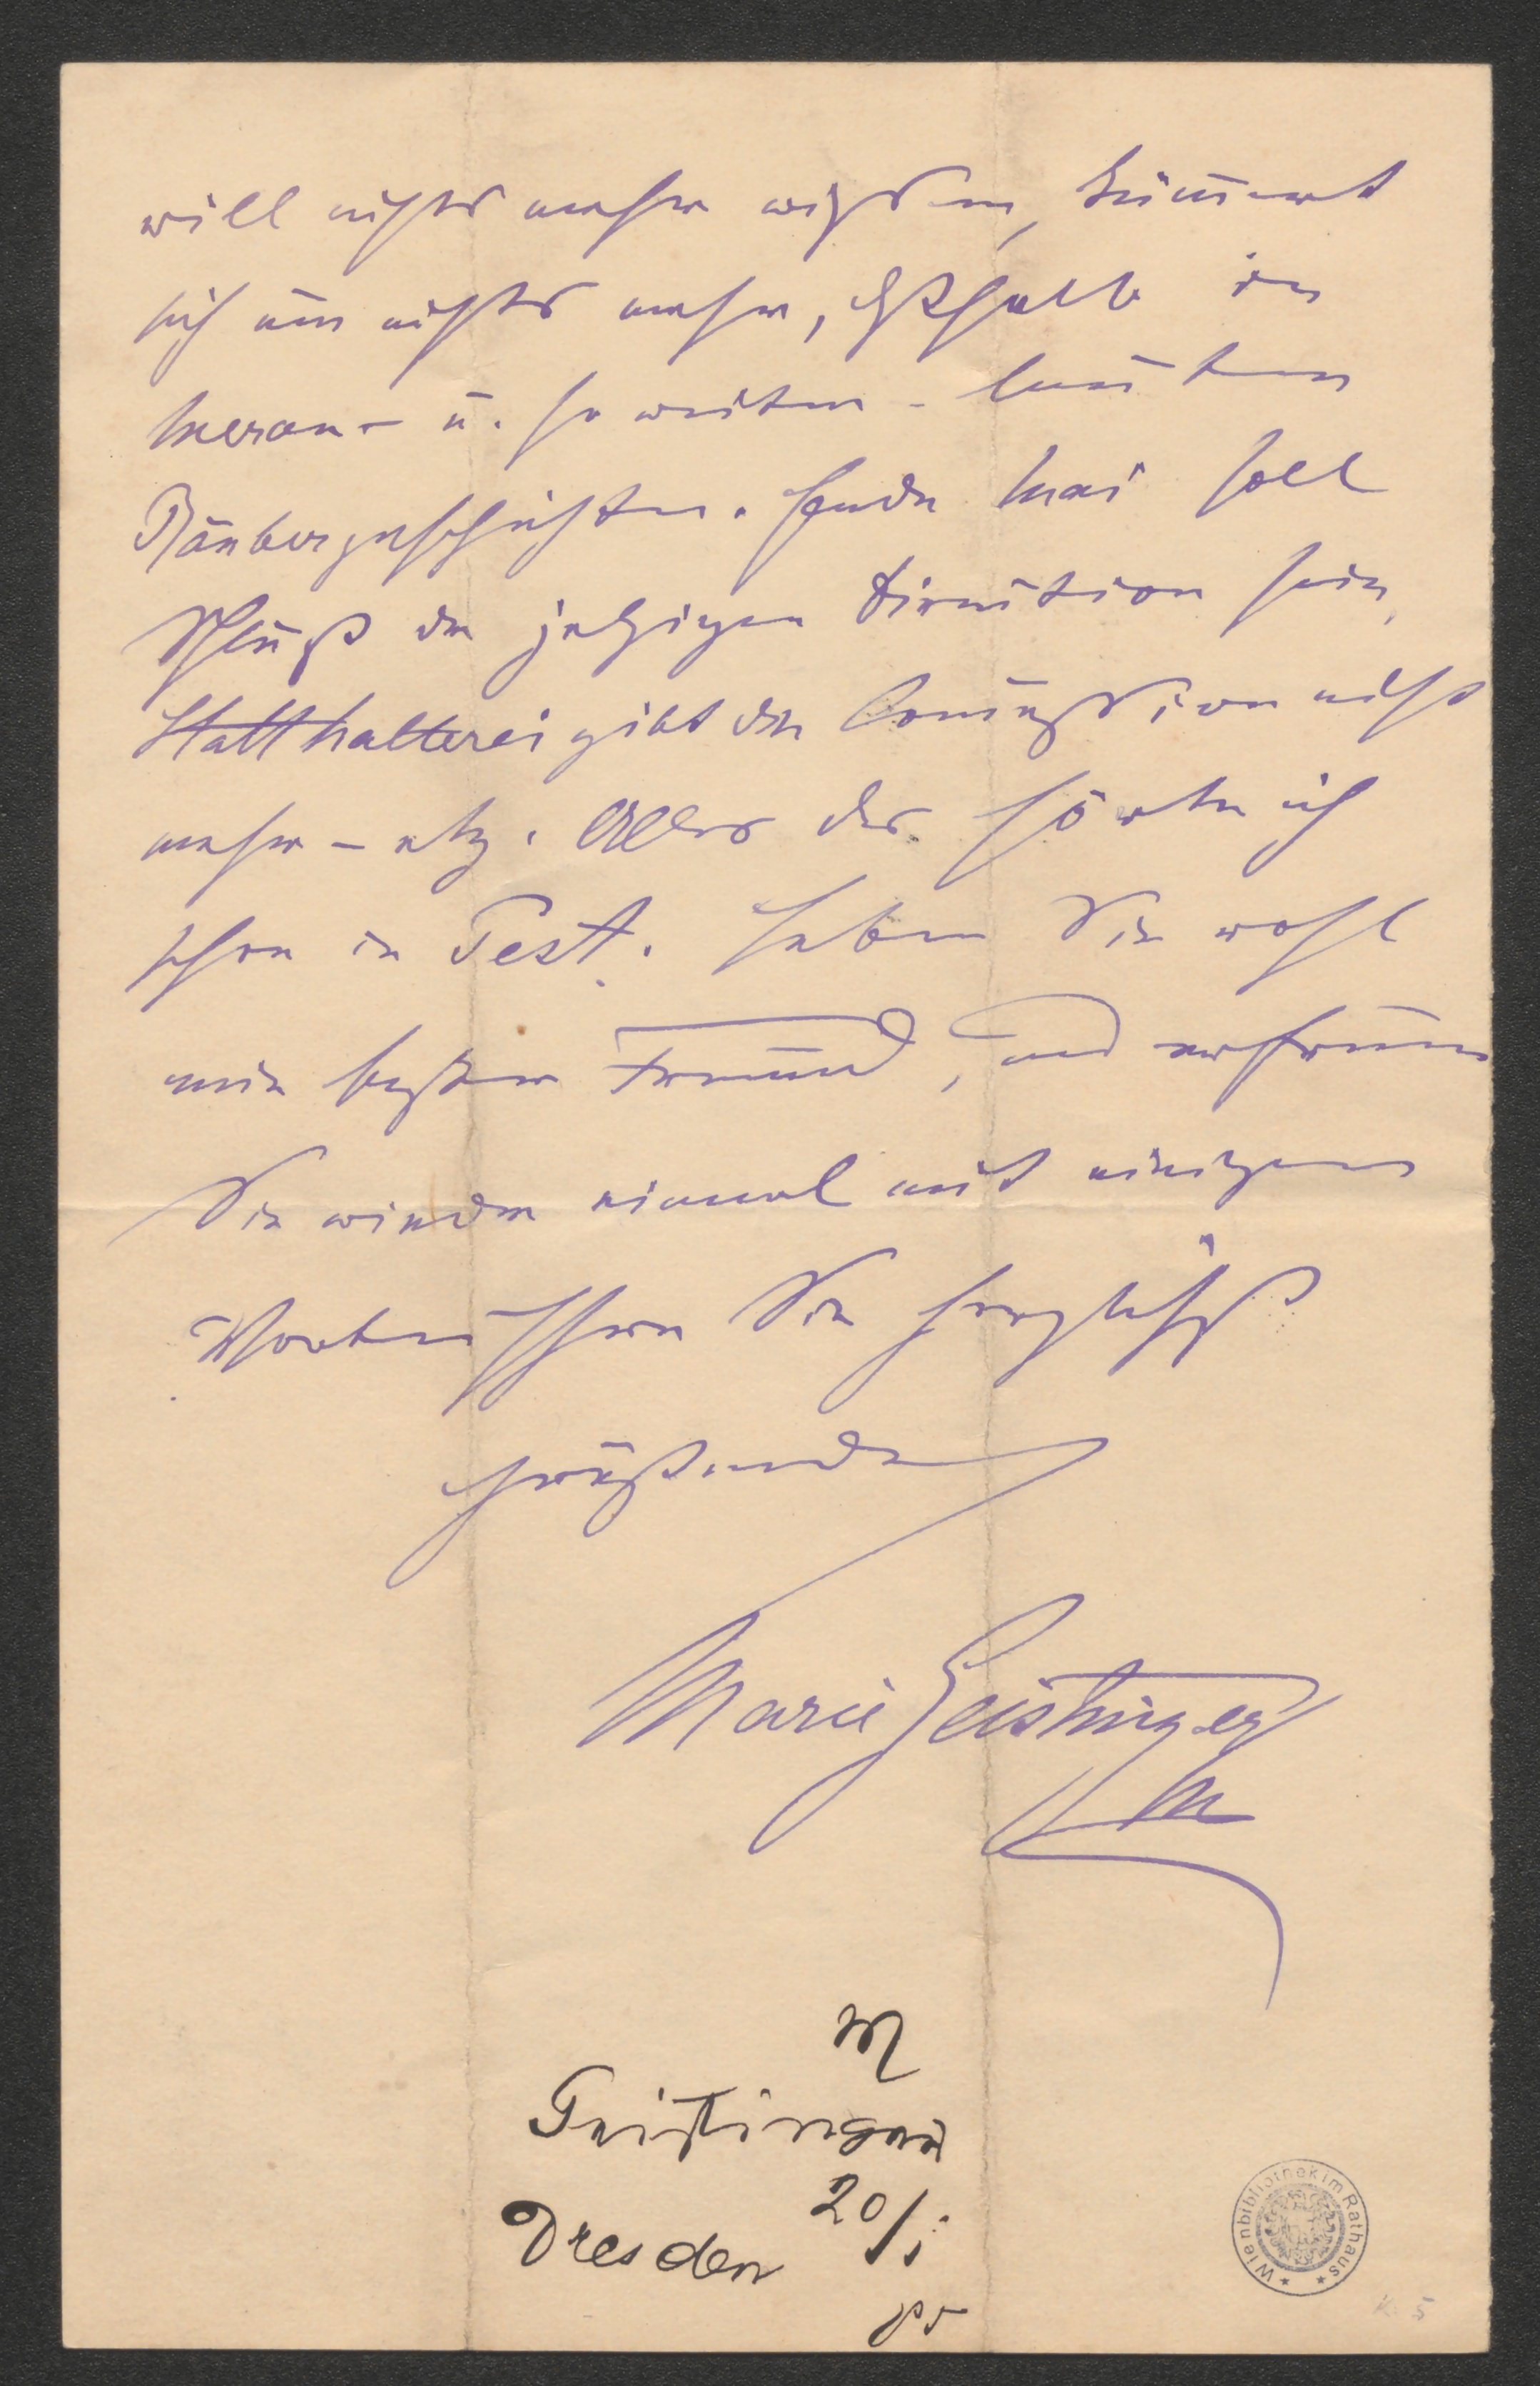 will nichts mehr wissen, kümmert
sich um nichts mehr, deßhalb in
Meran – u. so weiter – lauter
Räubergeschichten. Ende Mai soll
Schluß der jetzigen Direction sein,
Statthalterei gibt die Concession nicht
mehr – etz. Alles das hörte ich
schon in Pest. Leben Sie wohl
mein bester Freund, und erfreuen
Sie wieder einmal mit einigen
Worten Ihre Sie herzlichst
grüßende
Marie Geistinger
M
Geistinger
Dresden 20/1
85
Wienbibliothek im Rathaus
K. 5